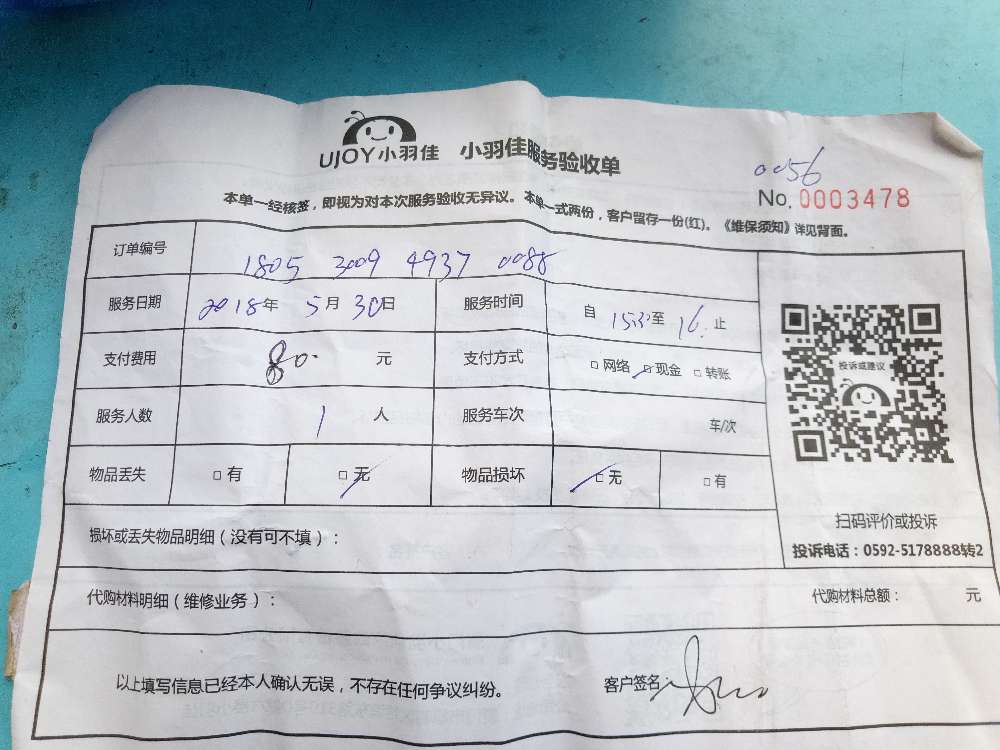 UJOY小羽佳 小羽佳服务验收单
0056
No. 0003478
本单一经核签，即视为对本次服务验收无异议。本单一式两份，客户留存一份(红)。《维保须知》详见背面。
订单编号 1805 3009 4937 0088
服务日期 2018年 5月 30日 服务时间 自 1533至 16. 止
支付费用 80. 元 支付方式 □网络 □现金 □转账
服务人数 1 人 服务车次 车/次
物品丢失 □有 □无 物品损坏 □无 □有
投诉或建议
扫码评价或投诉
投诉电话：0592-5178888转2
损坏或丢失物品明细（没有可不填）：
代购材料明细（维修业务）： 代购材料总额： 元
以上填写信息已经本人确认无误，不存在任何争议纠纷。 客户签名: